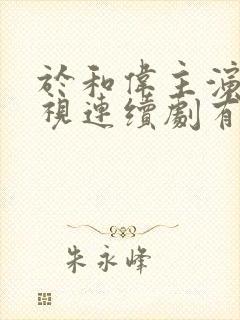 於和偉主演
視連續劇有
朱永峰